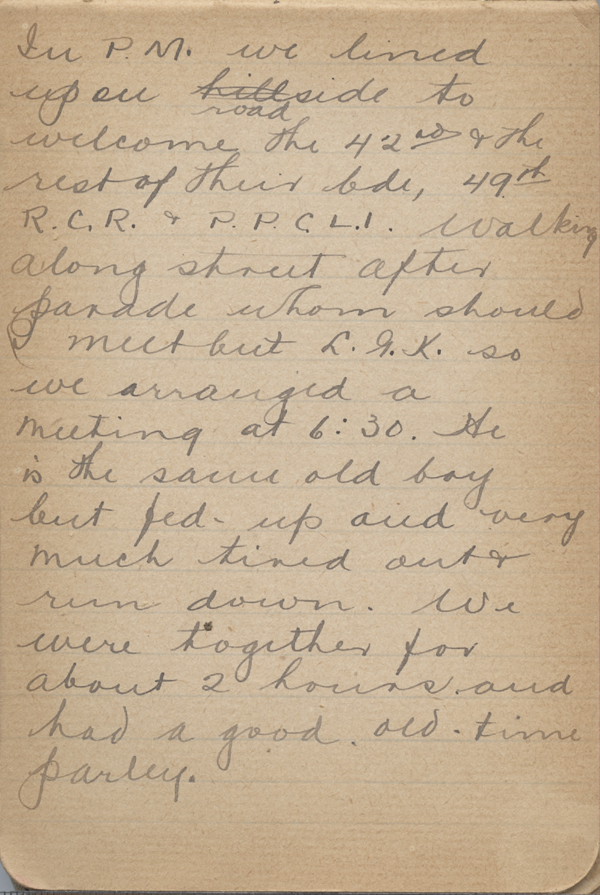 In P.M. we lined
up on hillside to
road
welcome the 42nd & the
rest of their bde, 49th
R.C.R. & P.P.C.L.I. Walking
along street after
parade whom should
I meet but L.G.K. so
we arranged a
meeting at 6:30. He
is the same old boy
but fed-up and very
much tired out &
run down. We
were together for
about 2 hours and
had a good old-time
parley.